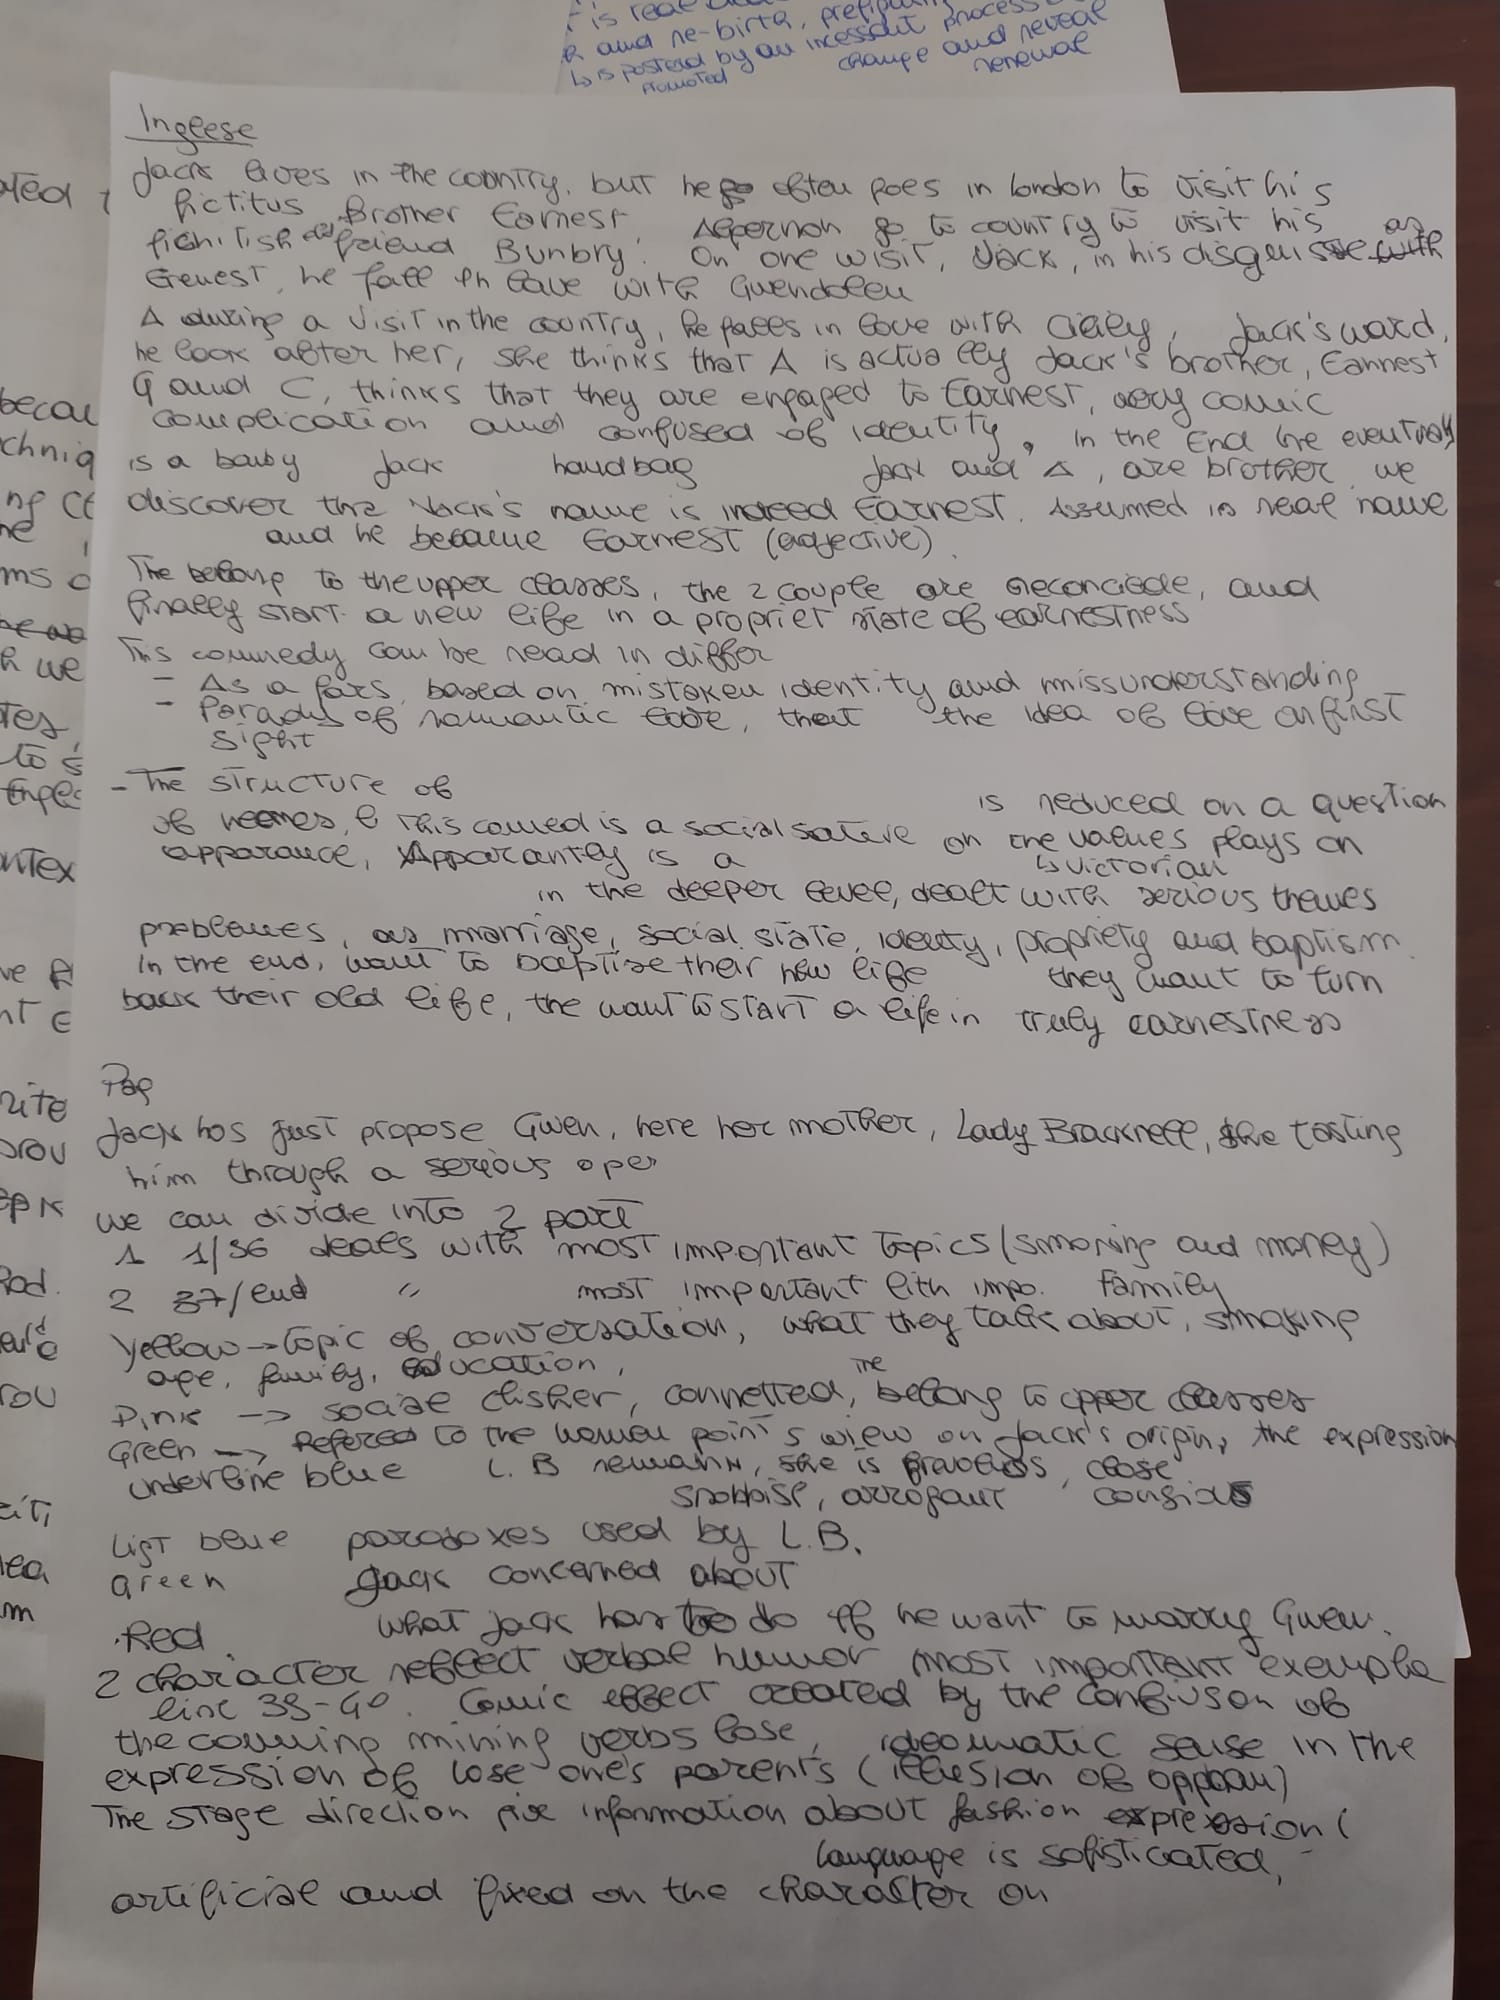 is real
and re-birth,
is posterd by an incessant process
promoted
change and reveal
renewal
Inglese
Jack lives in the country. but he often goes in london to visit his
fictitus Brother Earnest. Algernon go to country to visit his
friend Bunbry. On one wisit, Jack, in his disguise as with
Ernest, he fall in lave with Gwendolen
A during a visit in the country, he falls in love with Cicily, Jack's ward,
he look after her, she thinks that A is actually Jack's brother, Earnest
G and C, thinks that they are engaged to Earnest, very comic
complication and confused of identity, in the End we eventualy
is a baby Jack handbag Jack and A, are brother we
discover tha Jack's name is indeed Earnest. Assumed is real name
and he became Earnest (adjective).
The belong to the upper classes, the 2 couple are reconciede, and
finally start a new life in a propriet state of earnestness
This commedy can be read in differ
- As a fars, based on mistaken identity and missunderstanding
- Parady of romantic love, that the idea of love on first
sight
- The structure of
is reduced on a question
of neemes, this comed is a social satire on the values plays on
apparance, Apparantely is a
↳ victorian
in the deeper level, dealt with serious themes
problemes, as marriage, social state, identy, propriety and baptism
In the end, want to baptise their new life they want to turn
back their old life, the want to start a life in truly earnestness
Pag
Jack has just propose Gwen, here her mother, Lady Bracknell, she tasting
him through a serious oper
we can divide into 2 part
1 1/36 deals with most important topics (smoking and money)
2 37/end " most important lith impo. family
Yellow → topic of conversation, what they talk about, smoking
age, family, education,
Pink → social clisher, connetted, The belong to upper classes
Green → Refered to the women point's wiew on Jack's origin, the expression
underline blue L.B remark, she is
snobbish, arrogant
Ligt blue paradoxes used by L.B.
Green Jack concerned about
Red what Jack has to do if he want to marry Gwen.
2 character reflect verbal humor most important example
line 39-40. Comic effect created by the confiuson of
the couming mining verbs lose, ideomatic sense in the
expression of lose one's parents
The stage direction give information about fashion expression (
language is sofisticated,
artificial and fixed on the character on